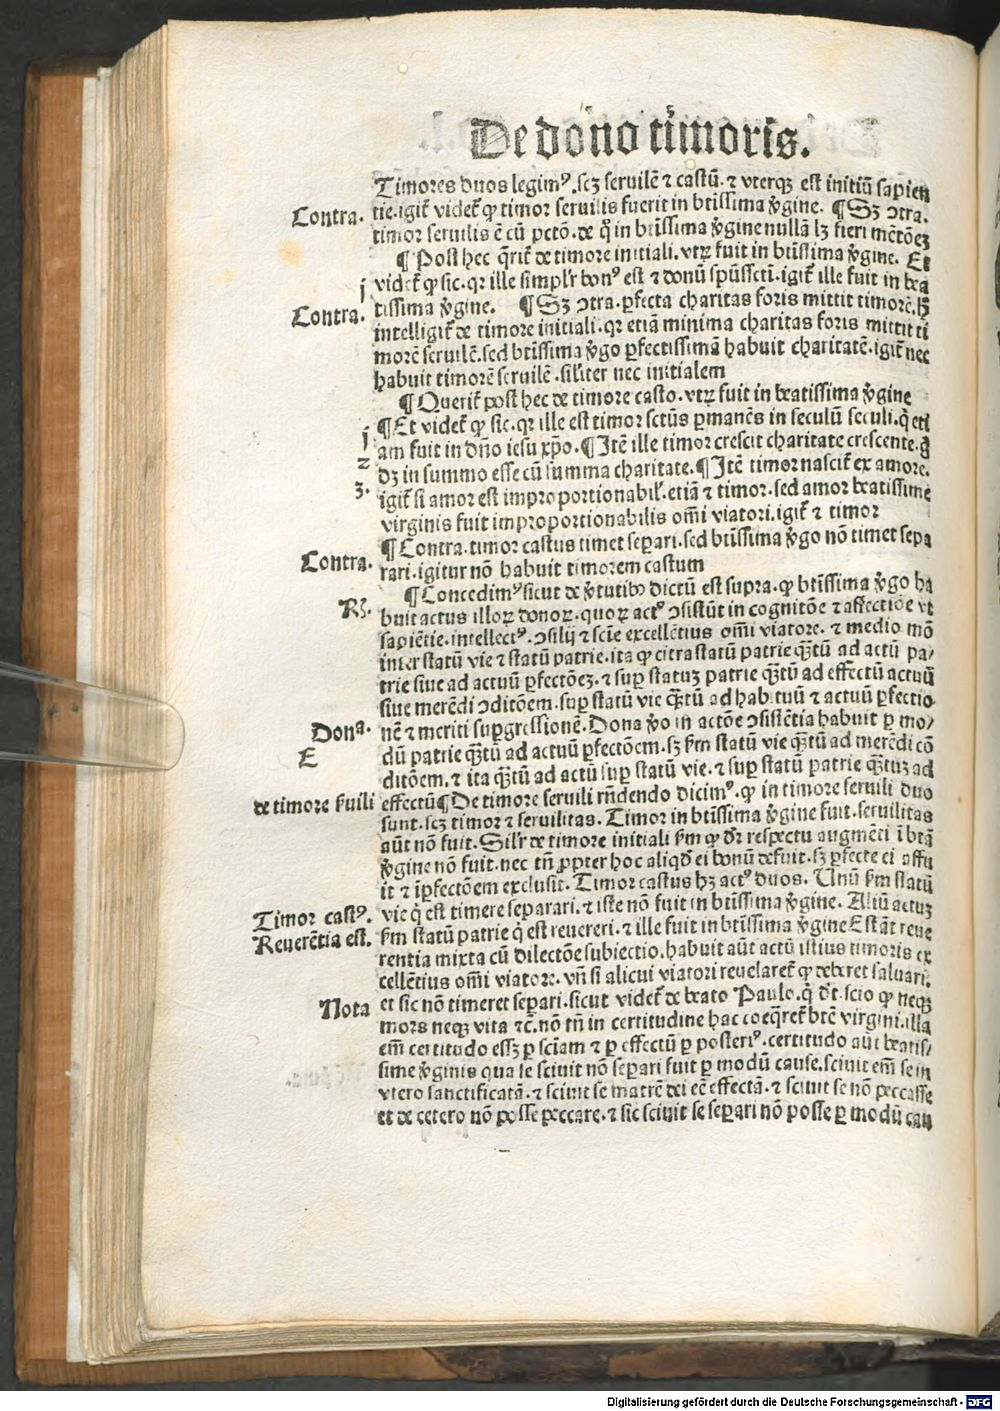 De dono timoris.
Timores duos legimꝰ.scꝫ seruilē ⁊ castū.⁊ vterqꝫ est initiū sapien
Contra.
tie.igit᷑ videt᷑ ꝙ timor seruilis fuerit in btīssima v̄gine. ¶ Sꝫ ↄtra.
timor seruilis ē cū pctō.de q̊ in btīssima v̄gine nullā lꝫ fieri mētōeꝫ
¶ Post hec q̄rit᷑ de timore initiali.vtꝝ fuit in btīssima v̄gine. Et
i
videt᷑ ꝙ sic.qꝛ ille simplr̄ bonꝰ est ⁊ donū spūssctī.igit᷑ ille fuit in bea
Contra.
tissima v̄gine. ¶ Sꝫ ↄtra.ꝑfecta charitas foris mittit timorē.
intelligit᷑ de timore initiali.qꝛ etiā minima charitas foris mittit ti
morē seruilē.sed btīssima v̄go ꝑfectissimā habuit charitatē.igit᷑ nec
habuit timorē seruilē.silīter nec initialem
¶ Querit᷑ post hec de timore casto.vtꝝ fuit in beatissima v̄gine
i
¶ Et videt᷑ ꝙ sic.qꝛ ille est timor sctūs ꝑmanēs in seculū seculi.q̄ eti
2
am fuit in dn̄o iesu xp̄o.¶ Itē ille timor crescit charitate crescente.g̊
dꝫ in summo esse cū summa charitate.¶ Itē timor nascit᷑ ex amore.
3.
igit᷑ si amor est improportionabil̓.etiā ⁊ timor.sed amor beatissime
virginis fuit improportionabilis om̄i viatori.igit᷑ ⁊ timor
Contra.
¶ Contra.timor castus timet seꝑari.sed btīssima v̄go nō timet sepa
rari.igitur nō habuit timorem castum
¶ Concedimꝰ sicut de v̄tutibꝰ dictū est supra.ꝙ btīssima v̄go ha
Rꝫ.
buit actus illoꝝ donoꝝ.quoꝝ actꝰ ↄsistūt in cognitōe ⁊ affectiōe vt
sapiētie.intellectꝰ.ↄsilij ⁊ scīe excellētius om̄i viatore.⁊ medio mō
inter statū vie ⁊ statū patrie.ita ꝙ citra statū patrie q̄ꝫtū ad actū pa/
trie siue ad actuū ꝑfectōeꝫ.⁊ suꝑ statuꝫ patrie q̄ꝫtū ad effectū actuū
siue merēdi ↄditōem.suꝑ statū vie q̄ꝫtū ad habituū ⁊ actuū ꝑfectio
Donᵃ.
nē ⁊ meriti suꝑgressionē.Dona v̊o in actōe ↄsistētia habuit ꝑ mo/
E
dū patrie q̄ꝫtū ad actuū ꝑfectōem.sꝫ fm̄ statū vie q̄ꝫtū ad merēdi cō
ditōem.⁊ ita q̄ꝫtū ad actū suꝑ statū vie.⁊ suꝑ statū patrie q̄ꝫtuꝫ ad
de timore ſuili
effectū¶ De timore seruili rn̄dendo dicimꝰ.ꝙ in timore seruili duo
sunt.scꝫ timor ⁊ seruilitas. Timor in btīssima v̄gine fuit.seruilitas
aūt nō fuit. Silr̄ de timore initiali fm̄ ꝙ dr̄ respectu augmēti ī btā
v̄gine nō fuit.nec tn̄ ꝓpter hoc aliqd̄ ei bonū defuit.sꝫ ꝑfecte ei affu
it ⁊ īꝑfectōem exclusit. Timor castus hꝫ actꝰ duos. Unū fm̄ statū
Timor castꝰ.
vie q̇ est timere seꝑarari.⁊ iste nō fuit in btīssima v̄gine. Aliū actuꝫ
Reuerētia est.
fm̄ statū patrie q̇ est reuereri.⁊ ille fuit in btīssima v̄gine Est āt reue
rentia mixta cū dilectōe subiectio.habuit aūt actū istius timoris ex
cellētius om̄i viatore. vn̄ si alicui viatori reuelaret᷑ ꝙ deberet saluari.
Nota
et sic nō timeret seꝑari.sicut videt᷑ de beato Paulo.q̇ dt̄.scio ꝙ neqꝫ
mors neqꝫ vita ⁊c̄.nō tn̄ in certitudine hac coeq̄ret᷑ btē virgini.illa
em̄ certitudo essꝫ ꝑ scīam ⁊ ꝑ effectū ꝑ posteriꝰ.certitudo aūt beatis/
sime v̄ginis qua se sciuit nō seꝑari fuit ꝑ modū cause.sciuit em̄ se in
vtero sanctificatā.⁊ sciuit se matrē dei eē effectā.⁊ sciuit se nō peccasse
et de cetero nō posse peccare.⁊ sic sciuit se seꝑari nō posse ꝑ modū cau
Digitalisierung gefördert durch die Deutsche Forschungsgemeinschaft - DFG